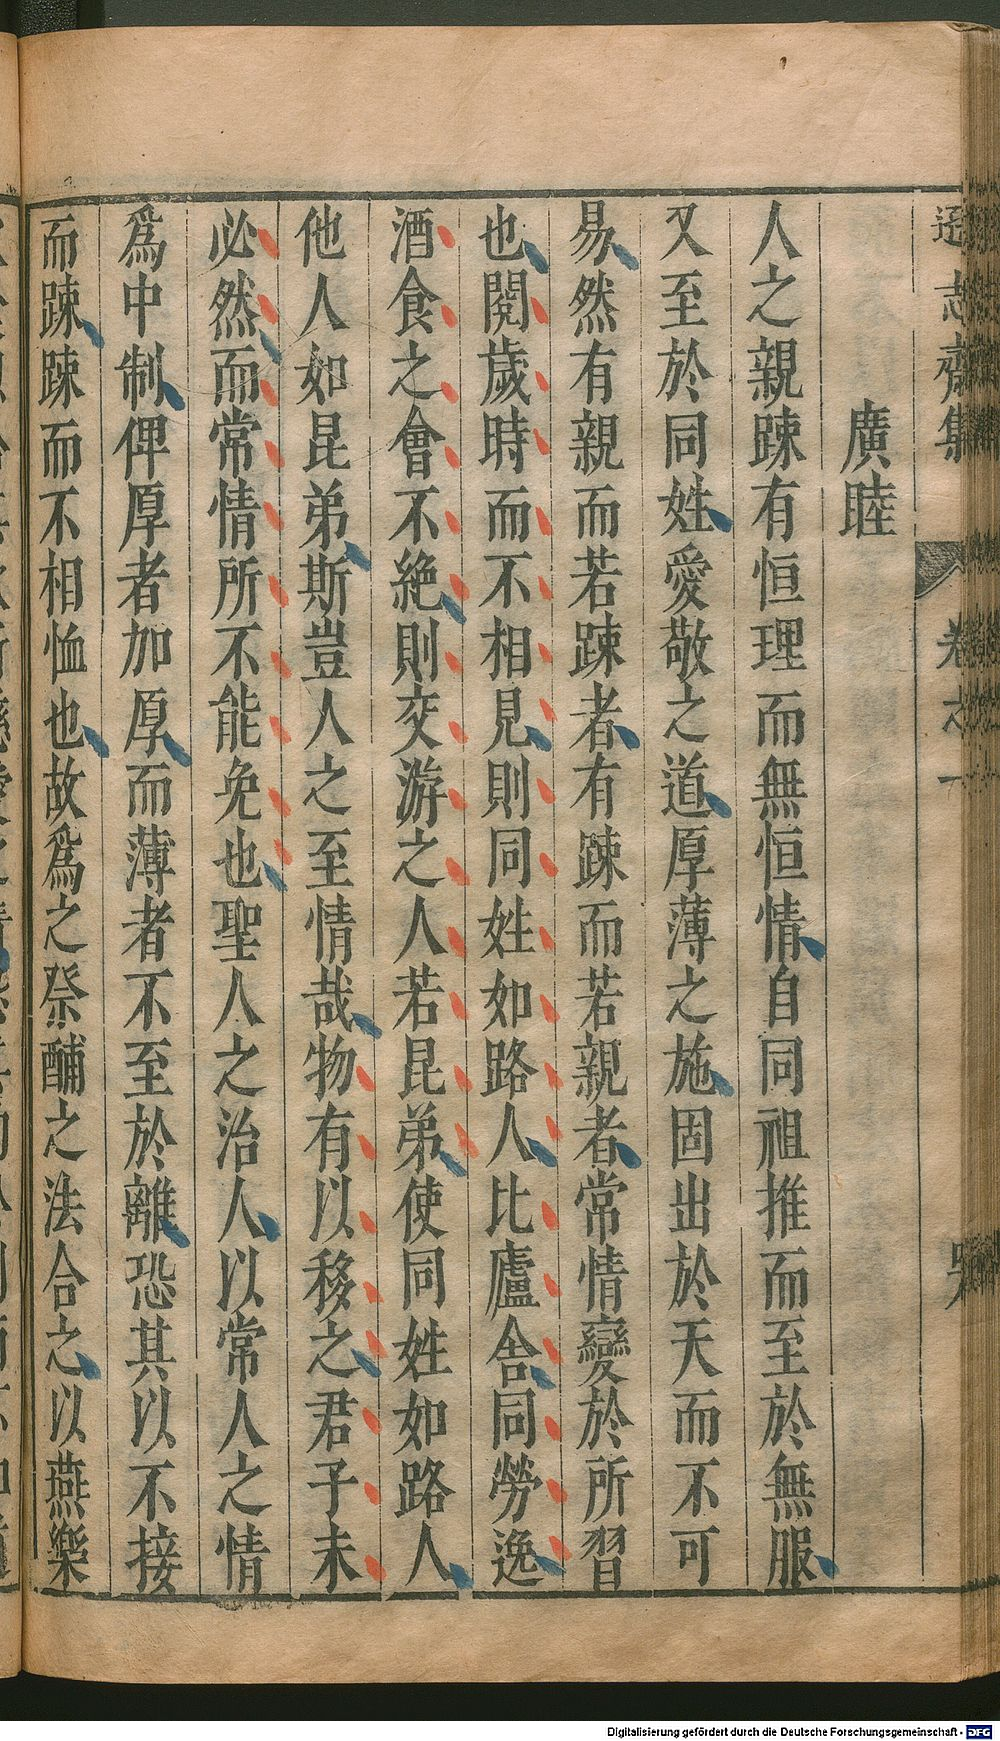 遜志齋集 卷之一
廣睦
人之親踈有恒理而無恒情自同祖推而至於無服
又至於同姓愛敬之道厚薄之施固出於天而不可
易然有親而若踈者有踈而若親者常情變於所習
也閱歲時而不相見則同姓如路人比廬舎同勞逸
酒食之會不絶則交游之人若昆弟使同姓如路人
他人如昆弟斯豈人之至情哉物有以移之君子未
必然而常情所不能免也聖人之治人以常人之情
爲中制俾厚者加厚而薄者不至於離恐其以不接
而踈踈而不相恤也故爲之祭酺之法合之以燕樂
Digitalisierung gefördert durch die Deutsche Forschungsgemeinschaft - DFG